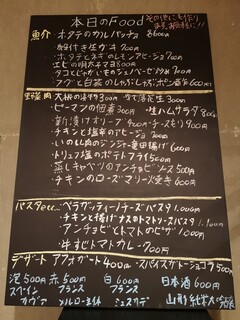 本日のFood
魚介 ホタテのカルパッチョ 800円
殻付き生ガキ 700円
ホタテとネギのレモンアヒージョ 700円
エビの明太チマヨ 800円
タコとじゃがいものジェノベーゼサラダ 700円
野菜肉 大根の 柿 300円 ゆで落花生 300円
ピーマンの 300円 生ハムサラダ 800円
新漬けオリーブ 400円
チキンと塩辛のアヒージョ 700円
いのしし肉のジンジャー 竜田揚げ 600円
トリュフ塩のポテトフライ 500円
蒸しキャベツのアンチョビソース 500円
チキンのローズマリー焼き 600円
パスタetc… ペラグッティーノチーズパスタ 1,000円
チキンと揚げナスのトマトソースパスタ 1,100円
アンチョビとトマトのピザ 1,000円
牛すじトマトカレー 700円
デザート アフォガート 400円 スパイスガトーショコラ 500円
泡 500円 赤 500円 白 600円 日本酒 600円
スペイン フランス フランス 山形 純米大吟醸
カヴァ メルロー主体